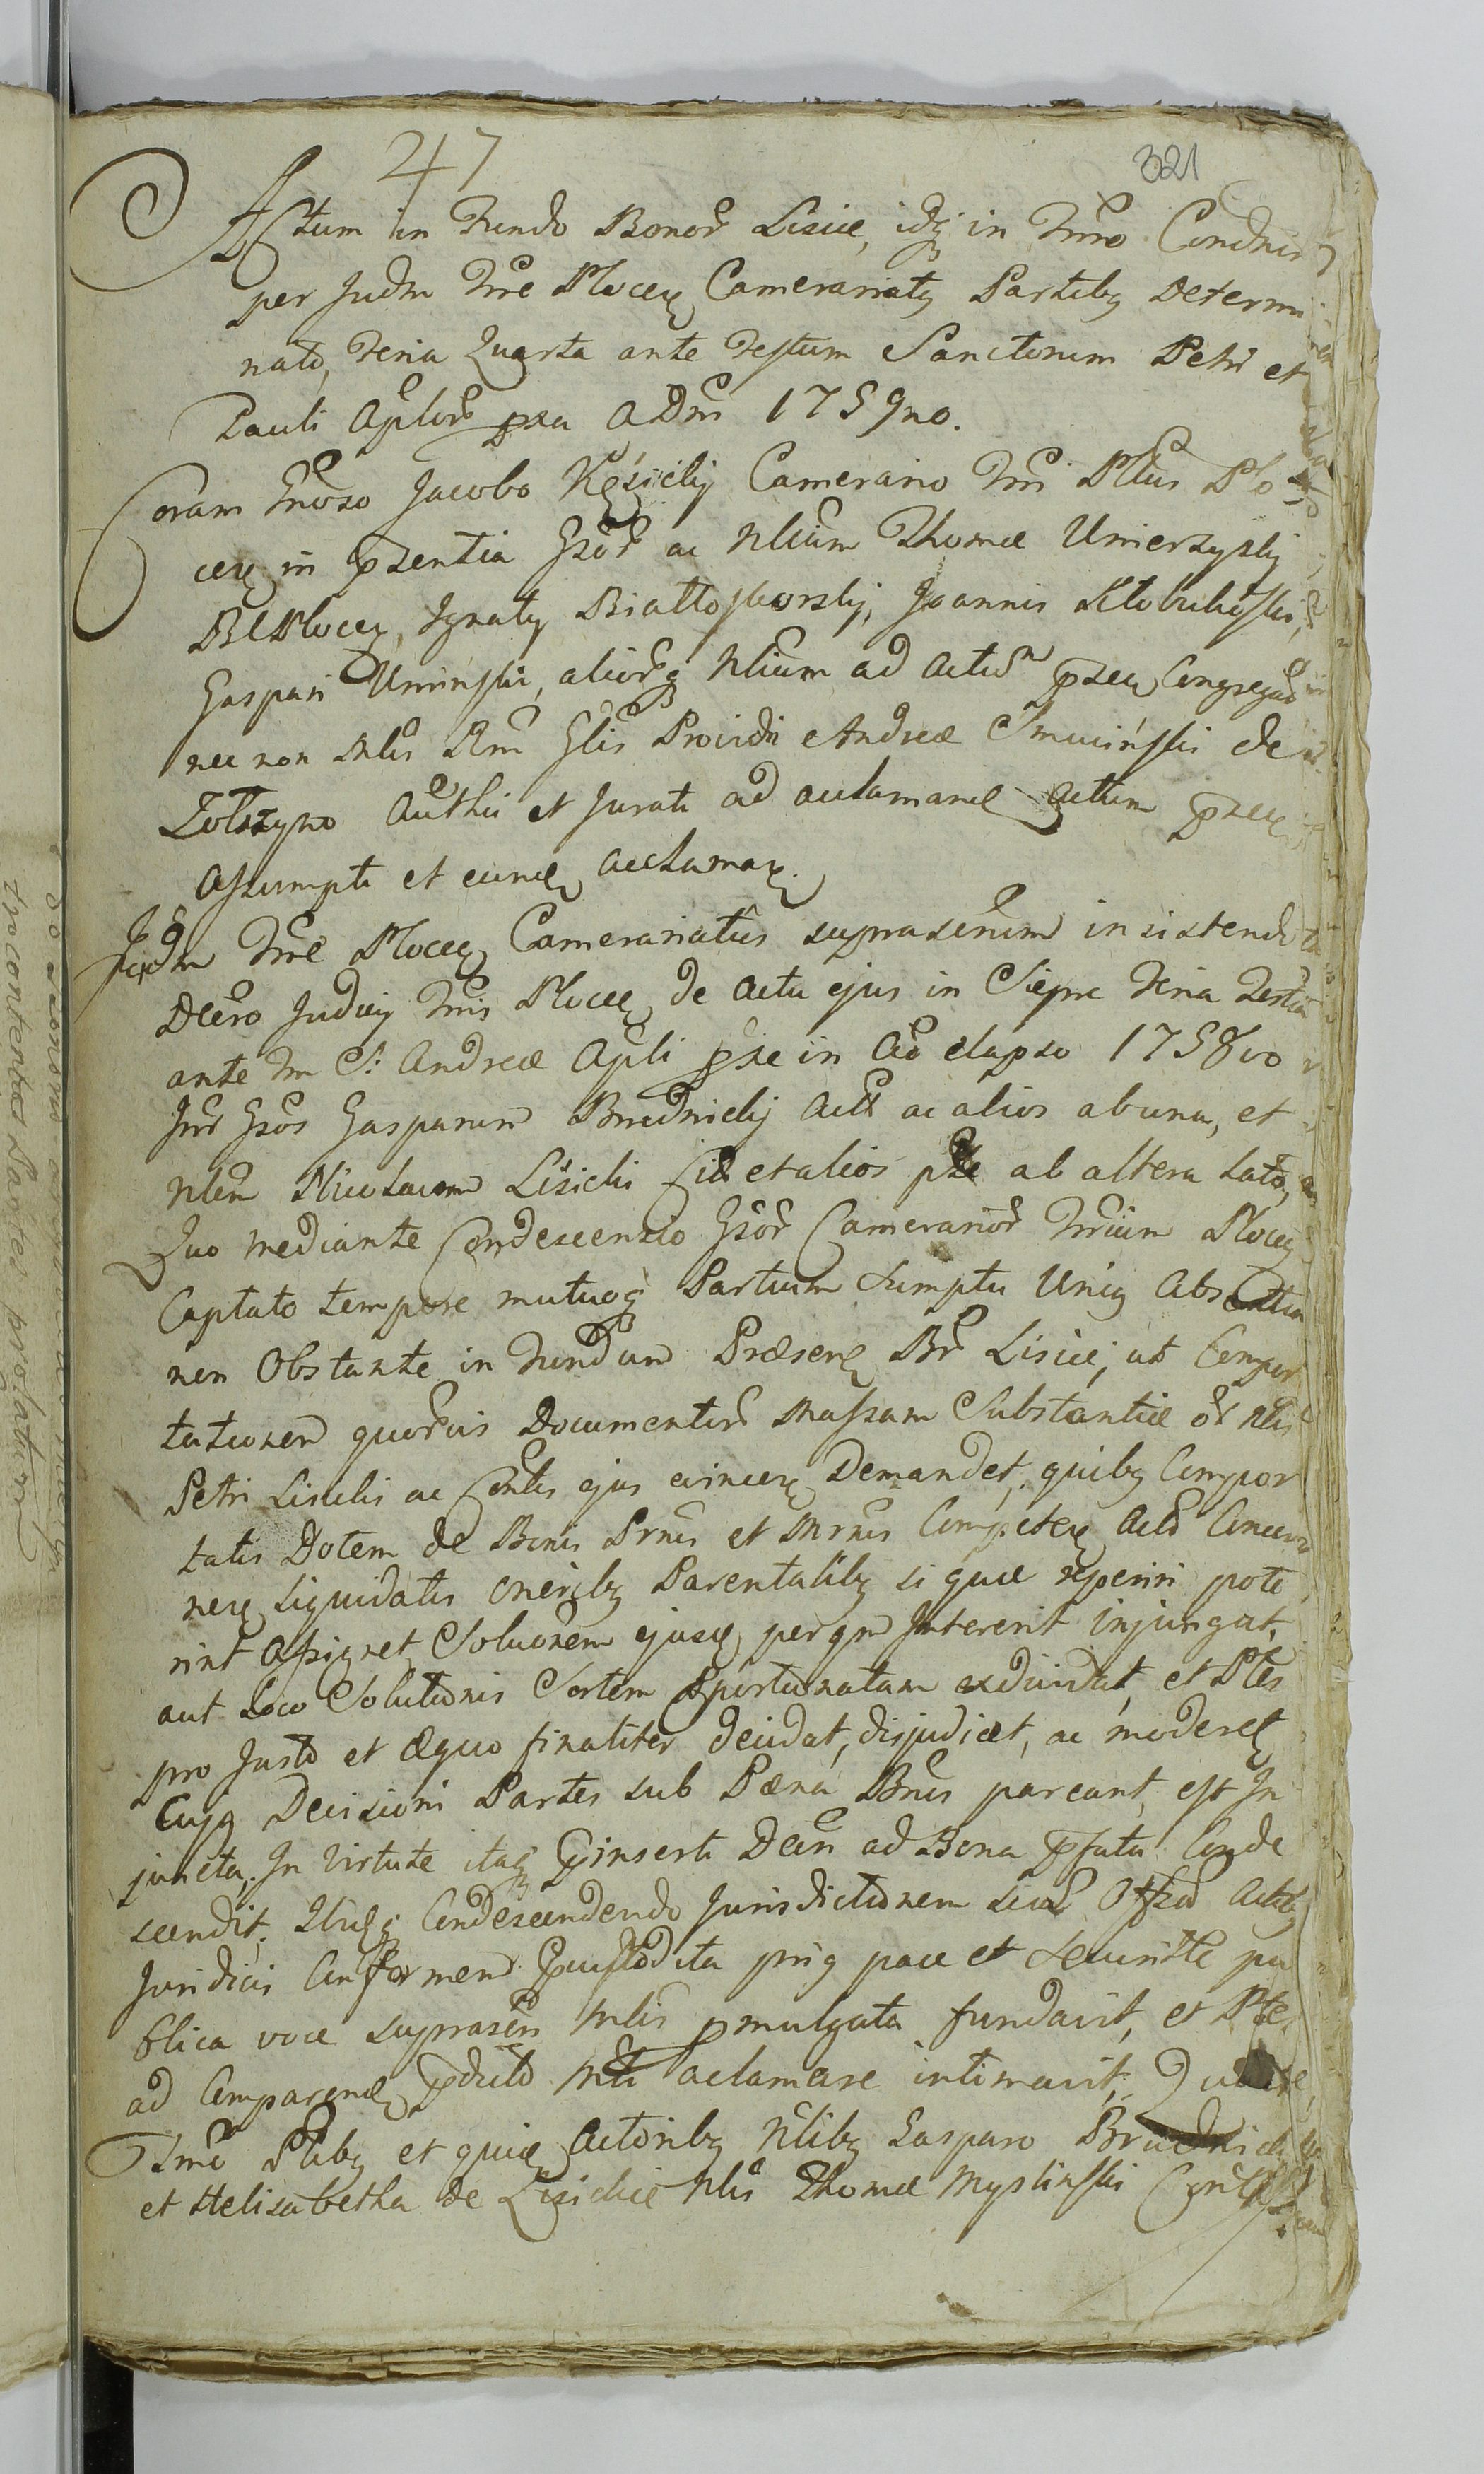 47
321
Actum in Fundo Bonor Lisice, idq in Tmno Condnis
per Judm Tnre Plocen Camerariatq Partibq Determi
nato, Feria Quarta ante Festum Sanctorum Petri et
Pauli Aplor pxa ADni 1759no.
Coram Gnoso Jacobo Kęsicki Camerario Tnri Pltus Plo
cen in pzentia Gsor ac Nlium Thomæ Umierzyski
BCPlocen, Ignatij Białłoskorski, Joannis Kłobukoski,
Gaspari Uminski, aliorq Nlium ad actum pzen Congregator
nec non Mlis Rni Glis Providi Andreæ Smucinski de
Zołtzyno Authci et Jurati ad acclamand actum pzen
assumpti et eund acclaman.
Judm Tnre Plocen Camerariatus suprascrium insistendo
Decro Judicij Tnris Plocen de actu ejus in Sieprc Feria Tertia
ante Fm S: Andreæ Apli pxe in Ao elapso 1758vo
Inr Gsos Gasparum Brudnicki Act ac alios ab una, et
Nlem Nicolaum Lisicki Cit et alios pte ab altera lato,
Quo mediante Condescensio Gsor Camerarior Trium Plocen
Captato tempore mutuoq Partium sumptu Uniq Absentia
non Obstante in Fundum Præsens Br Lisice, ut Compor
tationem quorvis Documentor Massam Substantiæ ol Nlis
Petri Lisicki ac Contlis ejus evincen Demandet, quibq Compor
tatis Dotem de Bonis Prnis et Mrnis Competen Acto Concer
nen liquidatis oneribq Parentalibq si quæ reperiri pote
rint assignet Soluonem ejusd per qm Intererit injungat,
aut Loco Solutionis Sortem Sportunatam exdividat, et Ptes
pro Justo et æquo finaliter decidat, disjudicet, ac moderet
Cujq Decisioni Partes sub Pæna Bnis pareant, est In
juncta. In virtute itaq pinserti Decri ad Bona pfata Conde
scendit, Ibidq Condescendendo Jurisdictionem suam Offsam Actibq
Juridicis Conformem pcustodita priq pace et securitte pu
blica voce suprascri Mlis pmulgata fundavit, et Ptes
ad Comparend pdicto Mli aclamare intimavit,
Tsmi Ptibq et quid Actoribq Nlibq Gasparo Brudnicki
et Helisabetha de Lisickie Nlis Thomæ Myslinski
tra contentas Partes prolatum